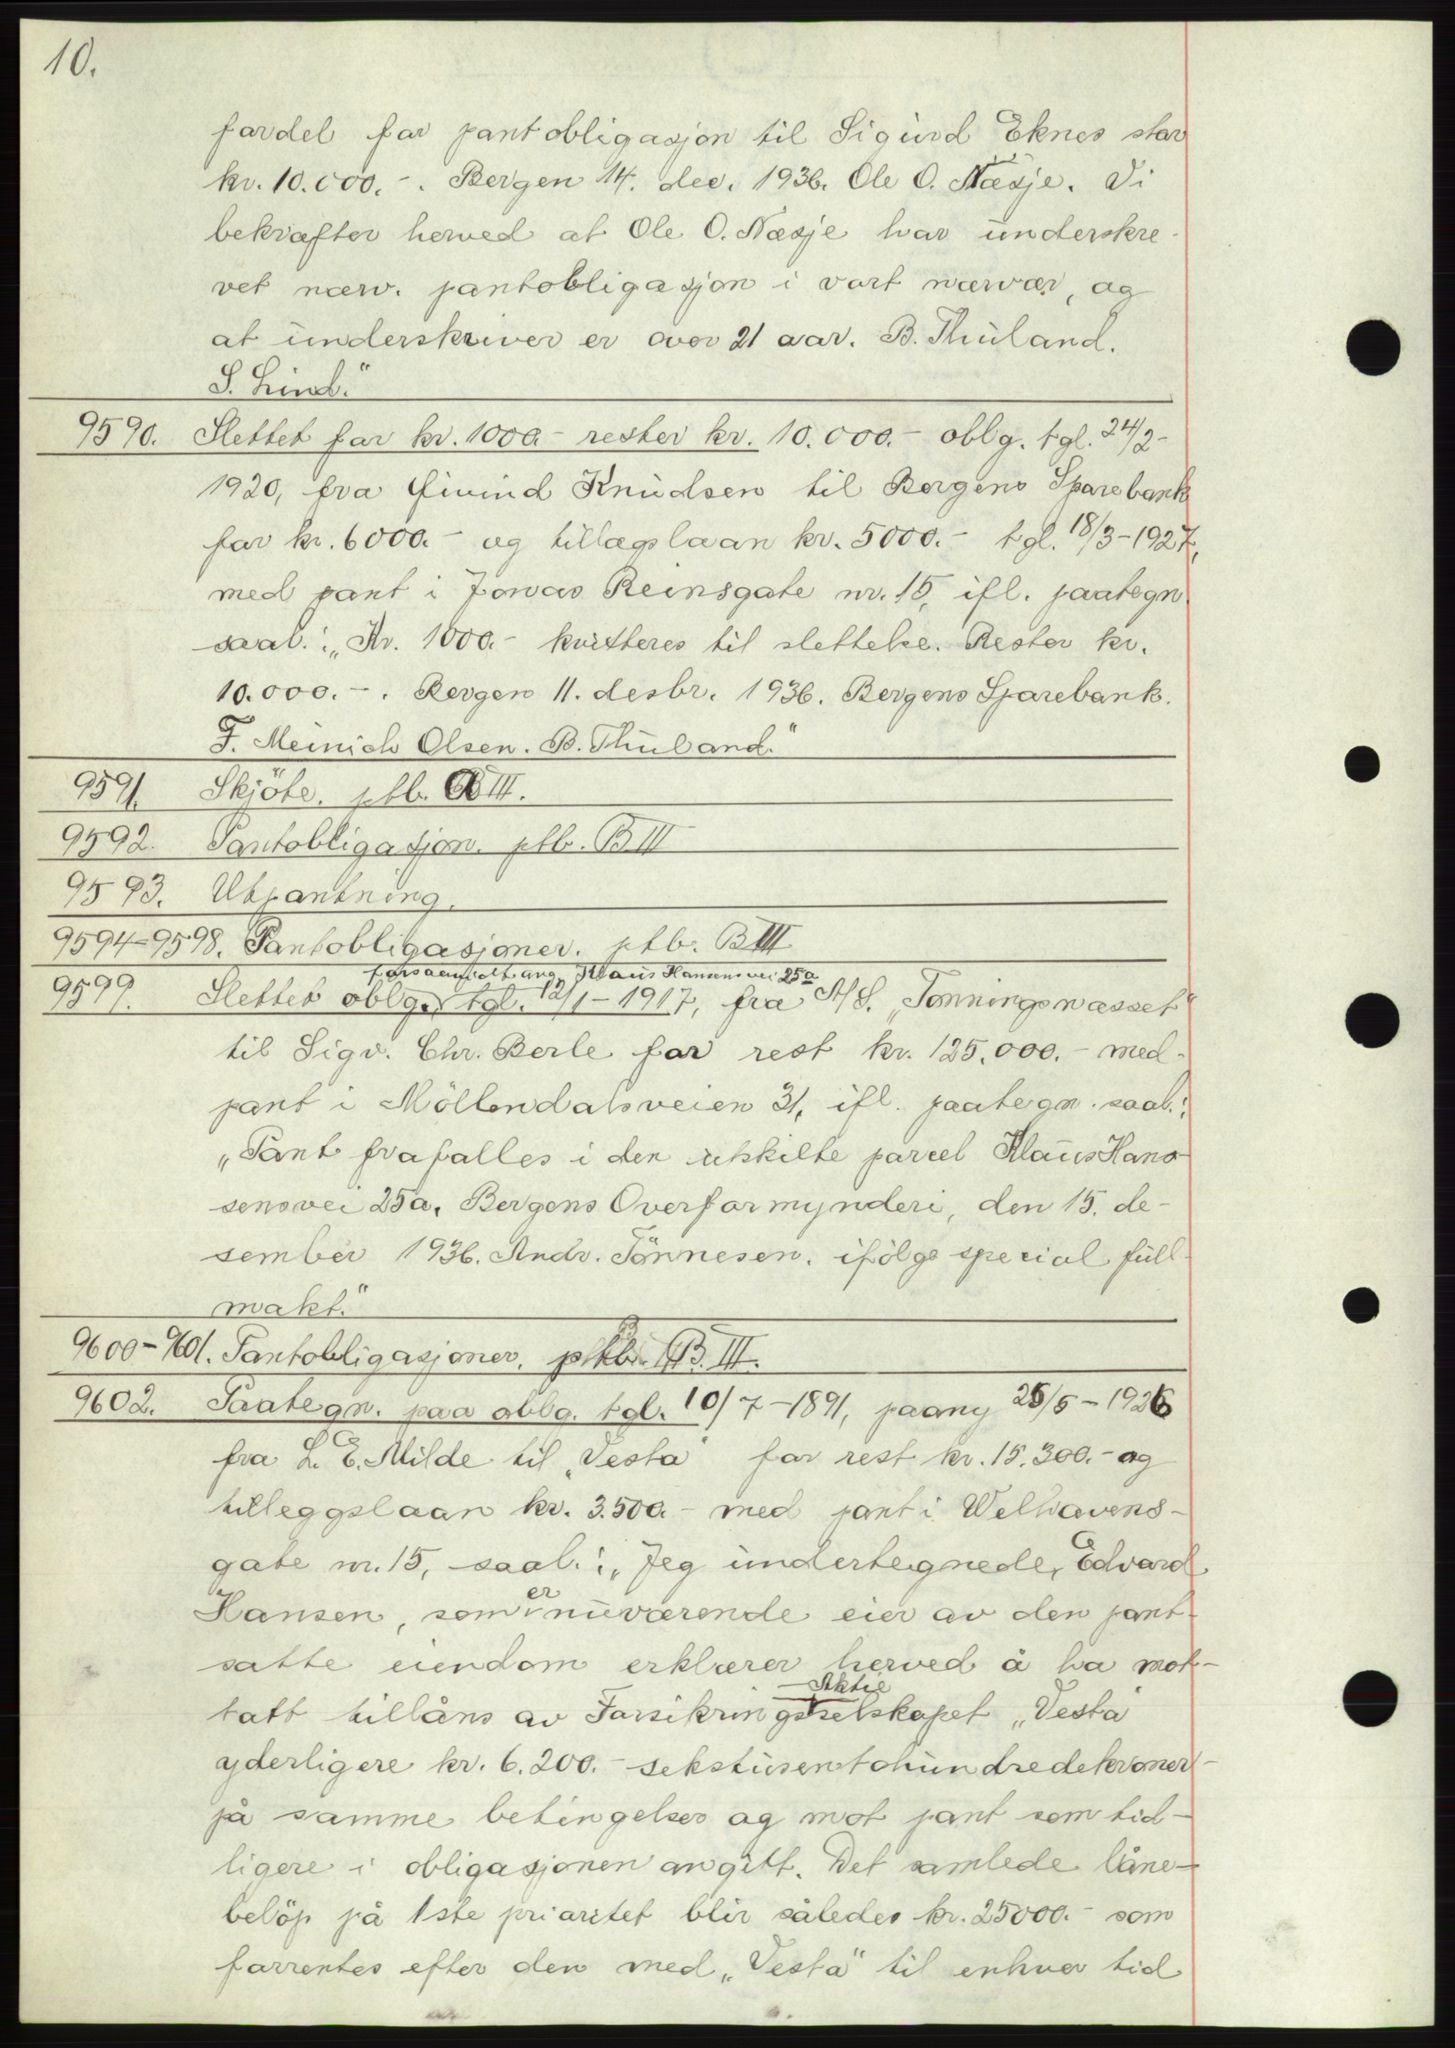 10.
fordel for pantobligasjon til Sigurd Eknes stor
kr. 10.000.-. Bergen 14. dec. 1936. Ole O. Næsje. Vi
bekræfter herved at Ole O. Næsje har underskre-
vet nærv. pantobligasjon i vort nærvær, og
at underskriver er over 21 aar. B. Thuland.
S. Lind."
9590. Slettet for kr. 1000.- rester kr. 10.000.- oblg. tgl. 24/2-
1920, fra Øivind Knudsen til Bergens Sparebank
for kr. 6000.- og tillægslaan kr. 5000.- tgl. 18/3-1927,
med pant i Jonas Reinsgate nr. 15, ifl. paategn.
saal.: „Kr. 1000.- kvitteres til slettelse. Rester kr.
10.000.-. Bergen 11. desbr. 1936. Bergens Sparebank.
F. Meinich Olsen. B. Thuland."
9591. Skjöte. ptb. B III.
9592. Pantobligasjon. ptb. B III
9593. Utpantning.
9594-9598. Pantobligasjoner. ptb. B III
forsaavidt ang. Klaus Hansens vei 25a
9599. Slettet oblg. tgl. 12/1-1917, fra A/S. „Tonningsnæsset"
til Sigv. Chr. Berle for rest kr. 125.000.- med
pant i Möllendalsveien 31, ifl. paategn. saal.:
„Pant frafalles i den utskilte parcel Klaus Han-
sensvei 25a. Bergens Overformynderi, den 15. de-
sember 1936. Andr. Tönnesen. ifölge special full-
makt."
9600-9601. Pantobligasjoner. ptb. B. III.
9602. Paategn. paa oblg. tgl. 10/7-1891, paany 26/5-1926
fra L. E. Milde til „Vesta" for rest kr. 15.300.- og
tilleggslaan kr. 3.500.- med pant i Welhavens-
gate nr. 15, saal.: „Jeg undertegnede, Edvard
Hansen, som er nuværende eier av den pant-
satte eiendom erklærer herved å ha mot-
Aktie
tatt tillåns av Forsikringsselskapet „Vesta"
yderligere kr. 6.200.- sekstusentohundredekroner-
på samme betingelser og mot pant som tid-
ligere i obligasjonen angitt. Det samlede låne-
belöp på 1ste prioritet blir således kr. 25000.- som
forrentes efter den med „Vesta" til enhver tid